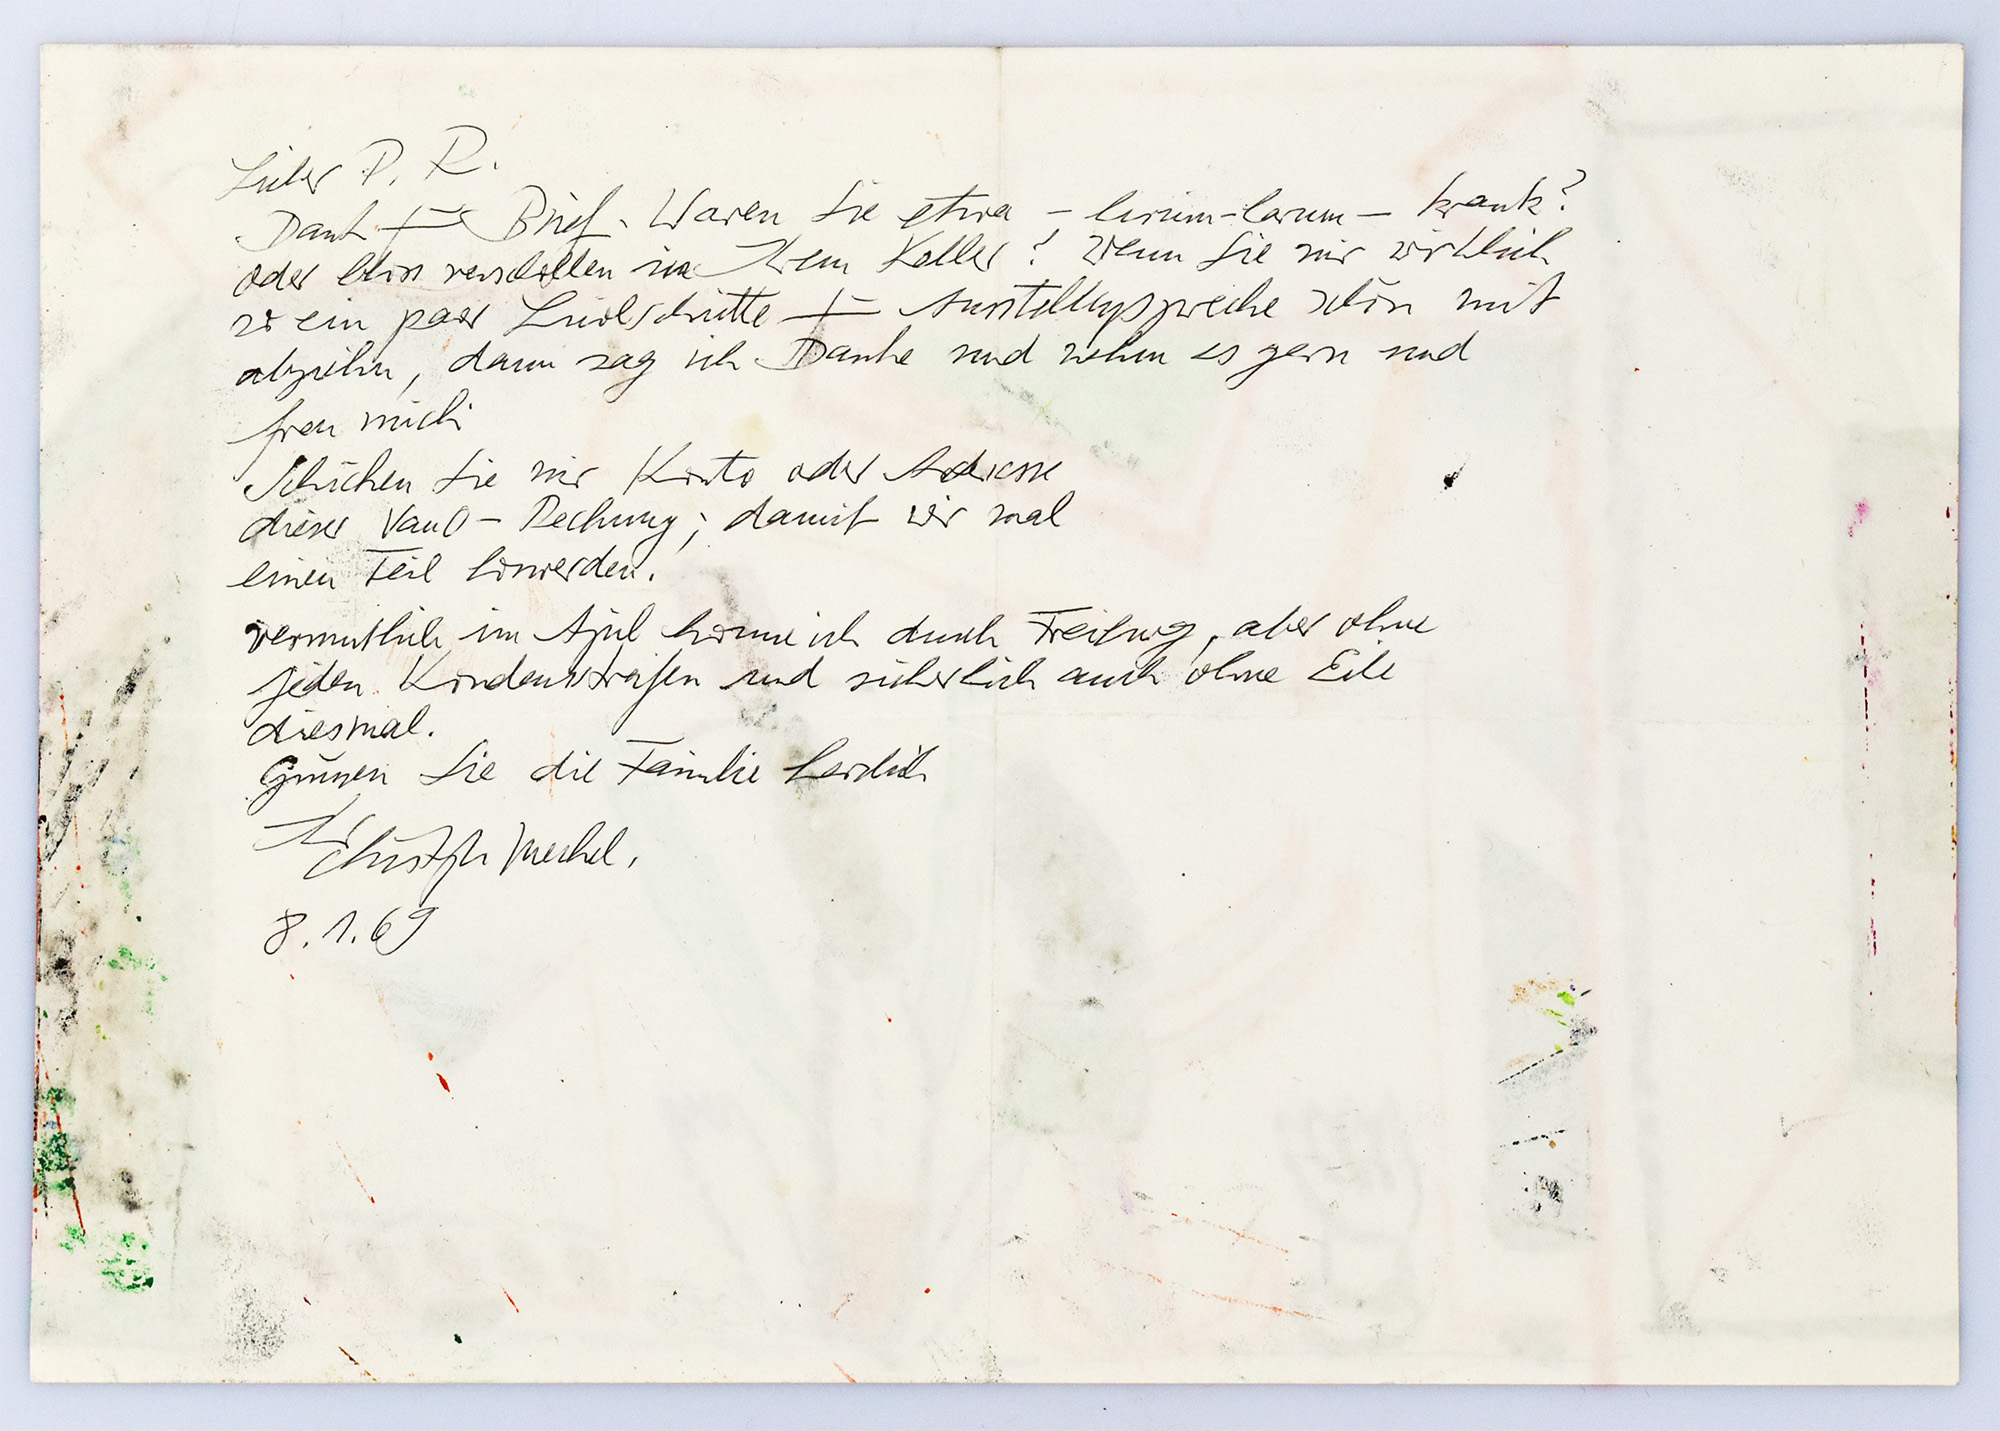 Lieber P. R.
Dank für Brief. Waren Sie etwa – lirum-larum – krank?
oder bloss verschollen in Ihrem Keller? Wenn Sie mir wirklich
so ein paar Linolschnitte für Ausstellungszwecke schön mit
abziehn, dann sag ich Danke und nehm es gern und
freu mich
Schicken Sie mir Konto oder Adresse
dieser VauO – Rechnung, damit wir mal
einen Teil loswerden.
vermutlich im April komme ich durch Freiburg, aber ohne
jeden Kinderwagen und sicherlich auch ohne Eile
diesmal.
Grüssen Sie die Familie herzlich
Ihr
Christoph Meckel.
8.1.69